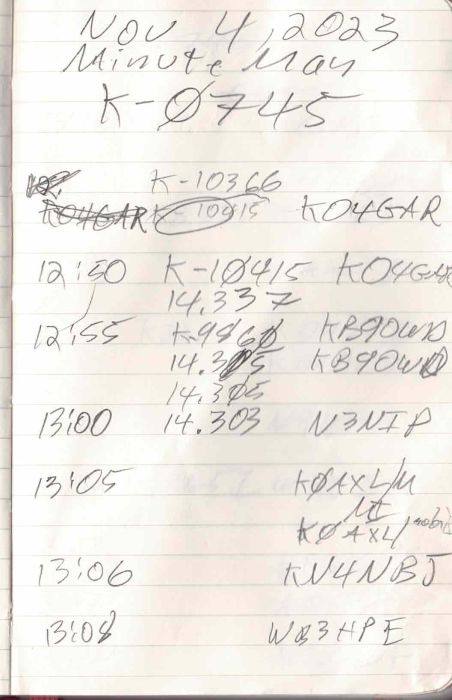 Nov 4, 2023
Minute Man
K-Ø745
K-10366
KO4GAR K-10415 KO4GAR
12:50 K-1Ø415 KO4GAR
14.337
12:55 K-986Ø KB9OWD
14.305 KB9OWD
14.305
13:00 14.303 N3NIP
13:05 KØAXL/M
MI
KØAXL/mobile
13:06 KN4NBJ
13:08 WB3HPE